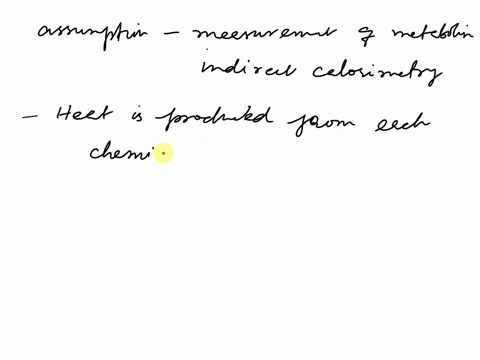 assumption - measurement of metabolism
indirect calorimetry
- Heat is produced from each
chemi